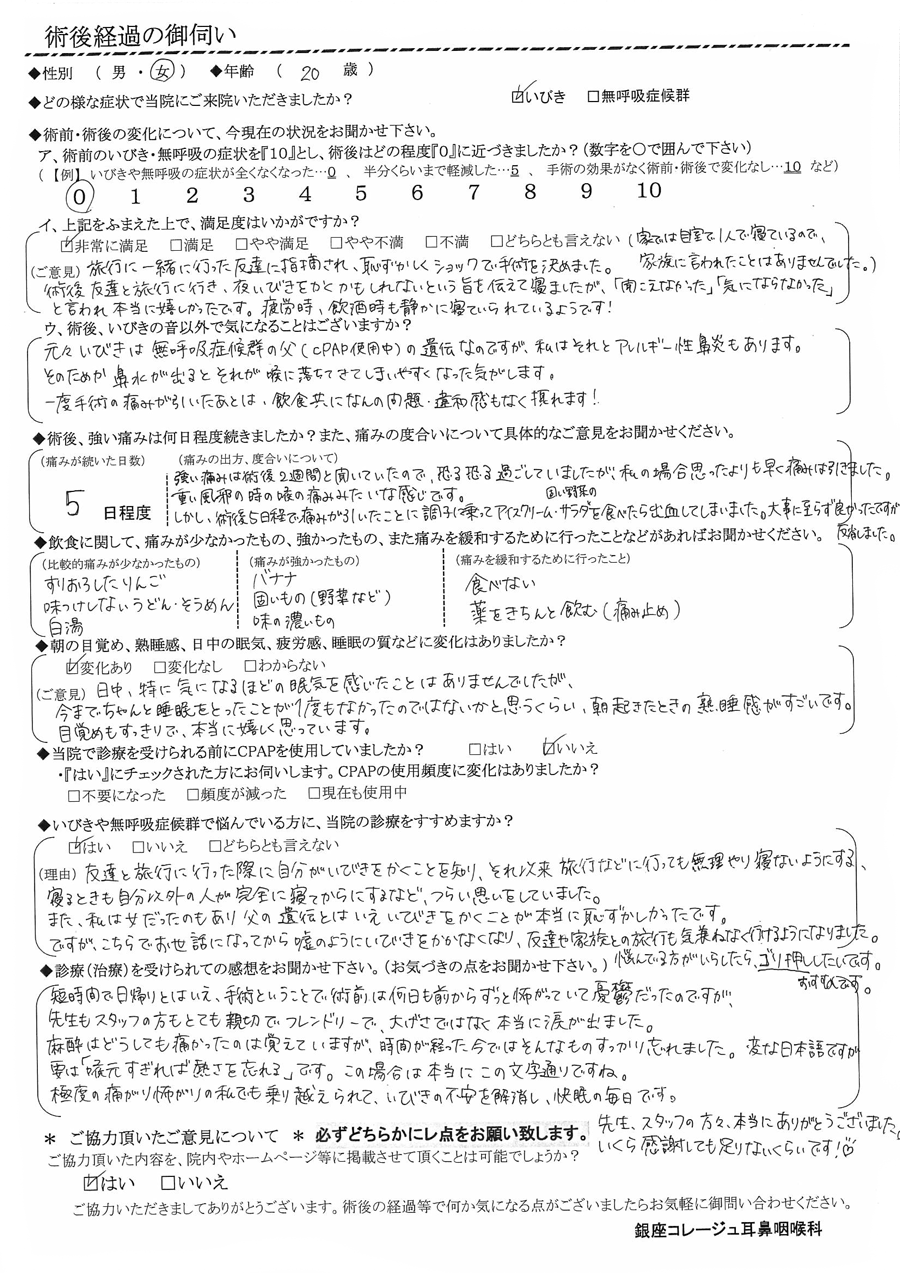 術後経過の御伺い
◆性別 ( 男 ・ 女 ) ◆年齢 ( 20 歳 )
◆どの様な症状で当院にご来院いただきましたか? ☑いびき □無呼吸症候群
◆術前・術後の変化について、今現在の状況をお聞かせ下さい。
ア、術前のいびき・無呼吸の症状を『10』とし、術後はどの程度『0』に近づきましたか?(数字を○で囲んで下さい)
(【例】いびきや無呼吸の症状が全くなくなった…0 、 半分くらいまで軽減した…5 、 手術の効果がなく術前・術後で変化なし…10 など)
0 1 2 3 4 5 6 7 8 9 10
イ、上記をふまえた上で、満足度はいかがですか?
☑非常に満足 □満足 □やや満足 □やや不満 □不満 □どちらとも言えない (家では自室で1人で寝ているので、
家族に言われたことはありませんでした。)
(ご意見) 旅行に一緒に行った友達に指摘され、恥ずかしくショックで手術を決めました。
術後友達と旅行に行き、夜いびきをかくかもしれないという旨を伝えて寝ましたが、「聞こえなかった」「気にならなかった」
と言われ本当に嬉しかったです。疲労時、飲酒時も静かに寝ていられているようです!
ウ、術後、いびきの音以外で気になることはございますか?
元々いびきは無呼吸症候群の父(CPAP使用中)の遺伝なのですが、私はそれとアレルギー性鼻炎もあります。
そのためか鼻水が出るとそれが喉に落ちてきてしまいやすくなった気がします。
一度手術の痛みが引いたあとは、飲食共になんの問題・違和感もなく摂れます!
◆術後、強い痛みは何日程度続きましたか?また、痛みの度合いについて具体的なご意見をお聞かせください。
(痛みが続いた日数) (痛みの出方、度合いについて)
5 日程度
強い痛みは術後2週間と聞いていたので、恐る恐る過ごしていましたが、私の場合思ったよりも早く痛みは引きました。
重い風邪の時の喉の痛みみたいな感じです。
固い野菜の
しかし、術後5日程で痛みが引いたことに調子に乗ってアイスクリーム・サラダを食べたら出血してしまいました。大事に至らず良かったですが
反省しました。
◆飲食に関して、痛みが少なかったもの、強かったもの、また痛みを緩和するために行ったことなどがあればお聞かせください。
(比較的痛みが少なかったもの) (痛みが強かったもの) (痛みを緩和するために行ったこと)
すりおろしたりんご バナナ 食べない
味つけしないうどん・そうめん 固いもの(野菜など) 薬をきちんと飲む(痛み止め)
白湯 味の濃いもの
◆朝の目覚め、熟睡感、日中の眠気、疲労感、睡眠の質などに変化はありましたか?
☑変化あり □変化なし □わからない
(ご意見) 日中、特に気になるほどの眠気を感じたことはありませんでしたが、
今までちゃんと睡眠をとったことが1度もなかったのではないかと思うくらい、朝起きたときの熟睡感がすごいです。
目覚めもすっきりで、本当に嬉しく思っています。
◆当院で診療を受けられる前にCPAPを使用していましたか? □はい ☑いいえ
・『はい』にチェックされた方にお伺いします。CPAPの使用頻度に変化はありましたか?
□不要になった □頻度が減った □現在も使用中
◆いびきや無呼吸症候群で悩んでいる方に、当院の診療をすすめますか?
☑はい □いいえ □どちらとも言えない
(理由) 友達と旅行に行った際に自分がいびきをかくことを知り、それ以来旅行などに行っても無理やり寝ないようにする、
寝るときも自分以外の人が完全に寝てからにするなど、つらい思いをしていました。
また、私は女だったのもあり父の遺伝とはいえいびきをかくことが本当に恥ずかしかったです。
ですが、こちらでお世話になってから嘘のようにいびきをかかなくなり、友達や家族との旅行も気兼ねなく行けるようになりました。
悩んでいる方がいらしたら、ゴリ押ししたいです。
おすすめです。
◆診療(治療)を受けられての感想をお聞かせ下さい。(お気づきの点をお聞かせ下さい。)
短時間で日帰りとはいえ、手術ということで術前は何日も前からずっと怖がっていて憂鬱だったのですが、
先生もスタッフの方もとても親切でフレンドリーで、大げさではなく本当に涙が出ました。
麻酔はどうしても痛かったのは覚えていますが、時間が経った今ではそんなものすっかり忘れました。変な日本語ですが
要は「喉元すぎれば熱さを忘れる」です。この場合は本当にこの文字通りですね。
極度の痛がり怖がりの私でも乗り越えられて、いびきの不安を解消し、快眠の毎日です。
先生、スタッフの方々、本当にありがとうございました。
いくら感謝しても足りないくらいです!♡
* ご協力頂いたご意見について * 必ずどちらかにレ点をお願い致します。
ご協力頂いた内容を、院内やホームページ等に掲載させて頂くことは可能でしょうか?
☑はい □いいえ
ご協力いただきましてありがとうございます。術後の経過等で何か気になる点がございましたらお気軽に御問い合わせください。
銀座コレージュ耳鼻咽喉科